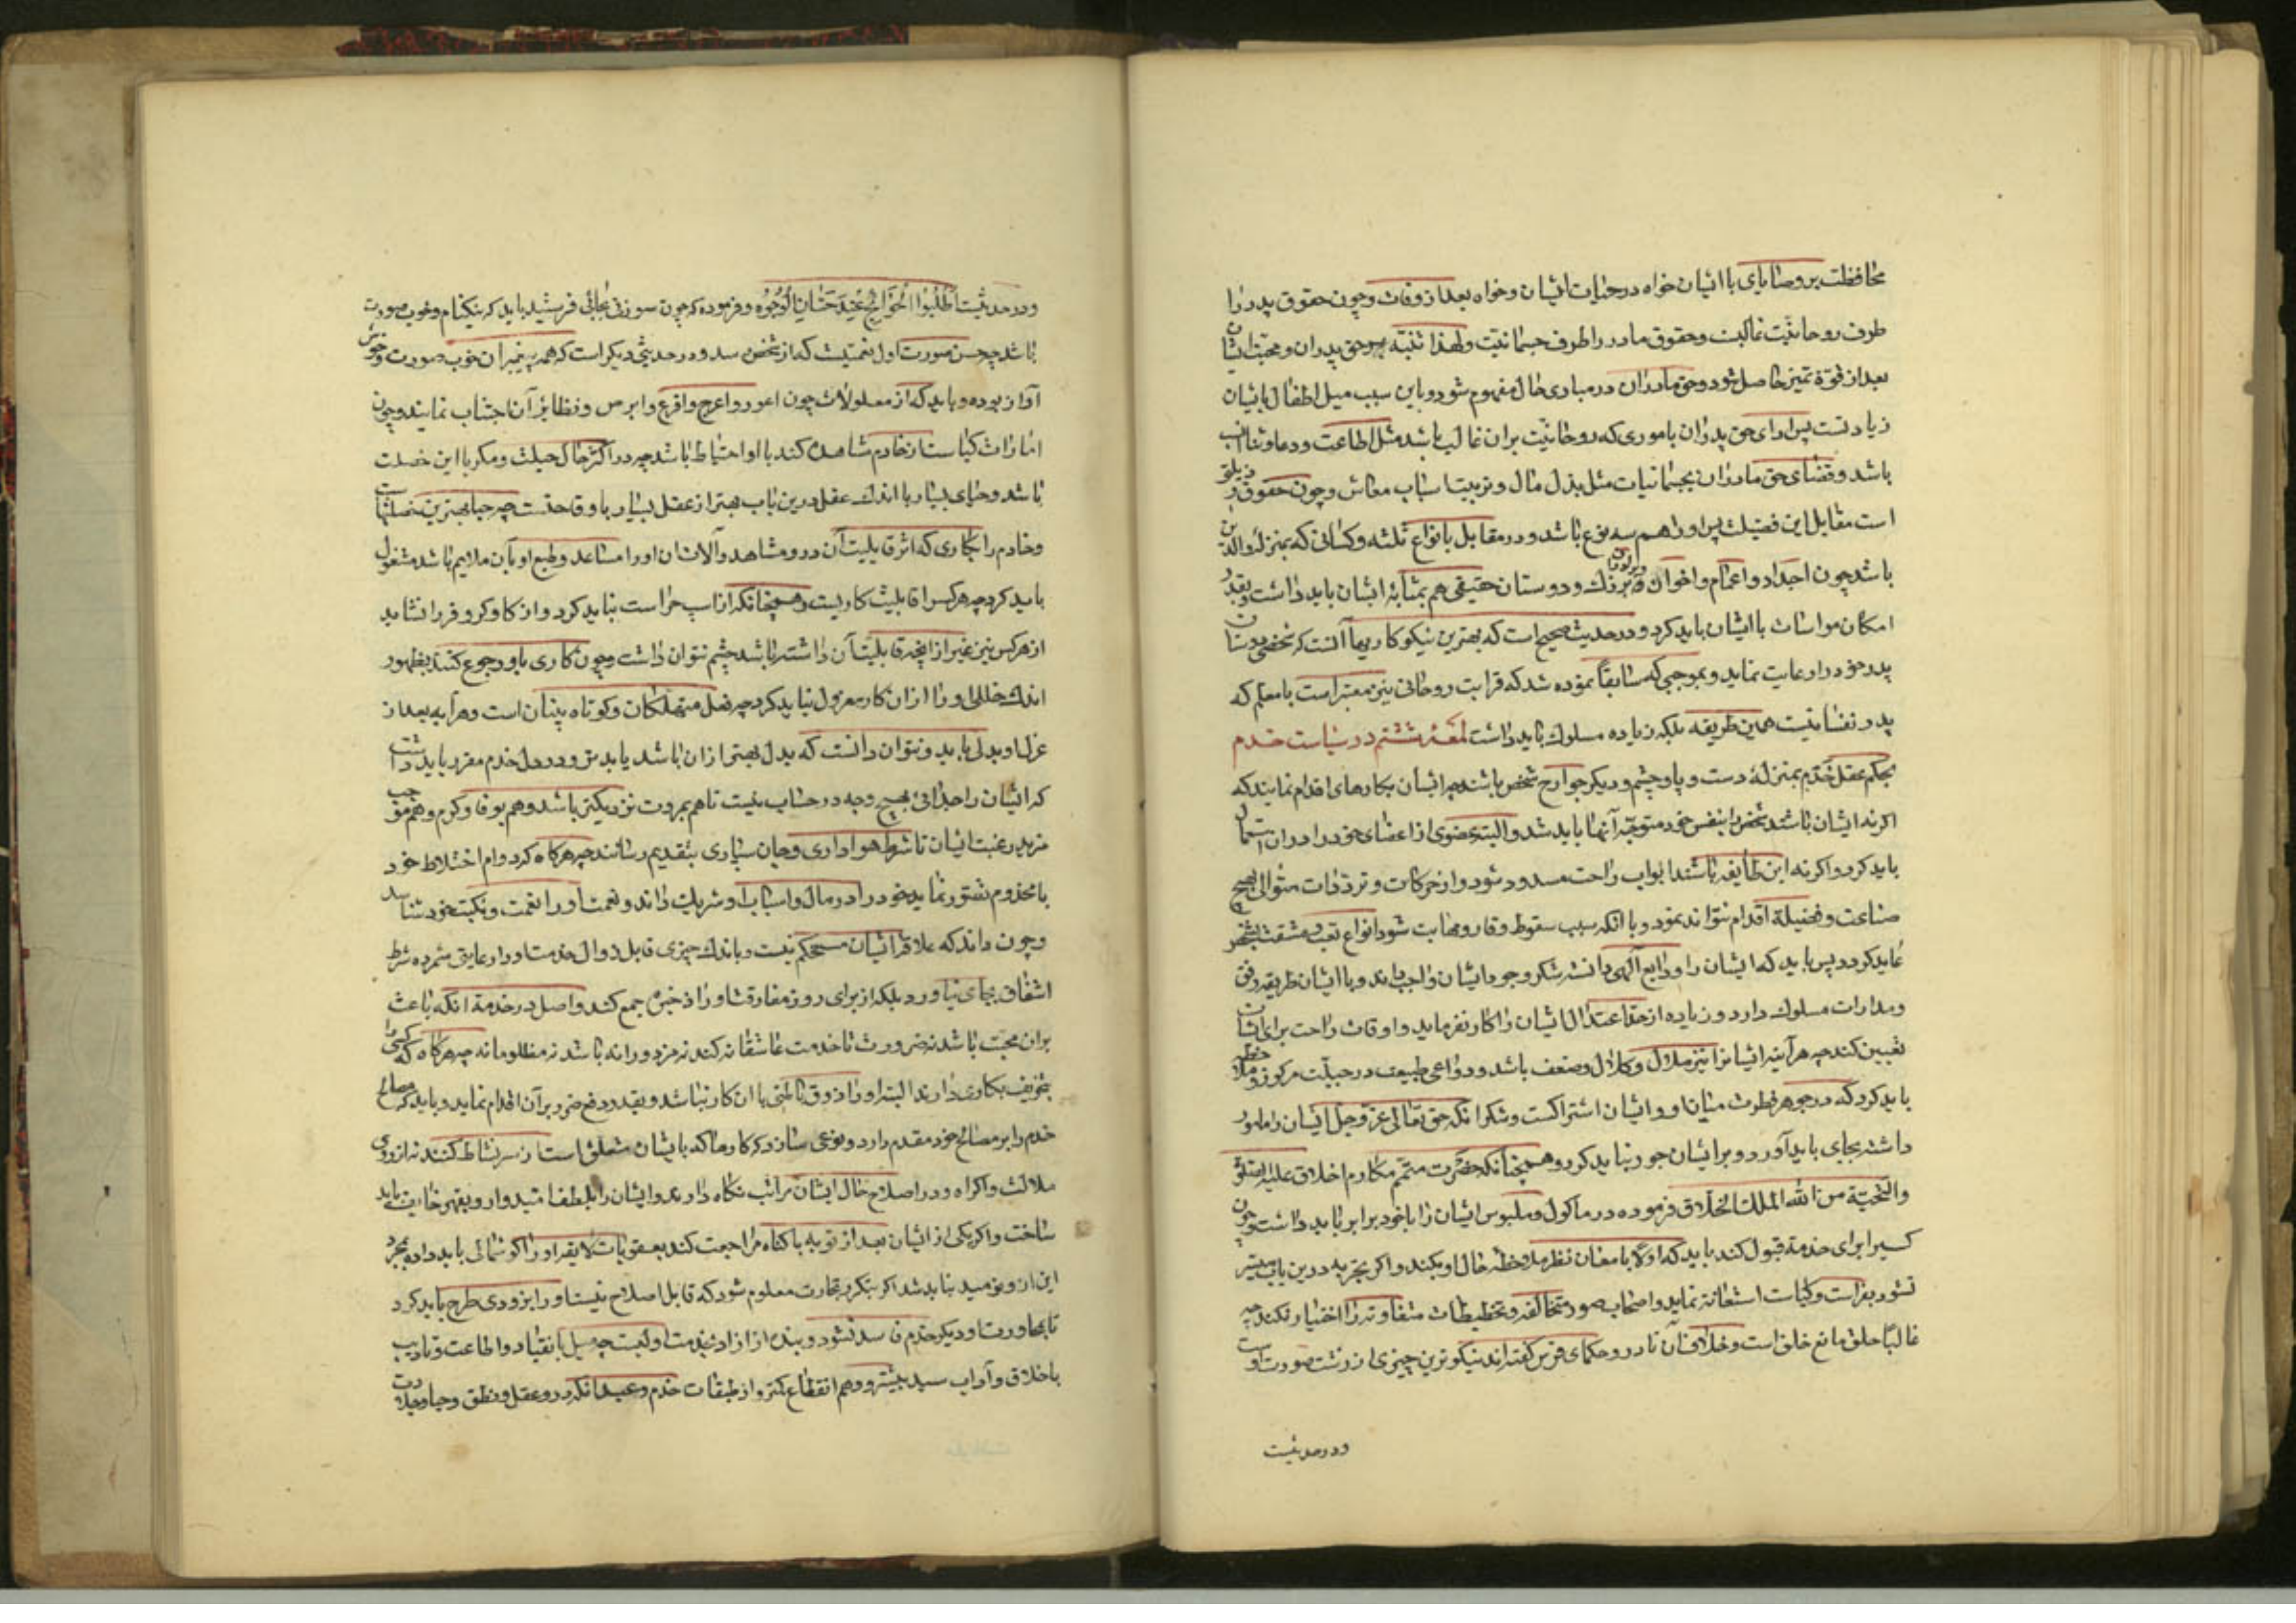 محافظت بر وصایای با ایشان خواه در حیات ایشان و خواه بعد از وفات و چون حقوق پدر را
طرف روحانیت غالبست و حقوق مادر را طرف جسمانیت و لهذا تنبه بر حق پدران و محبت ایشان
بعد از قوّة تمیز حاصل شود و حق مادران در مبادی حال مفهوم شود و باین سبب میل اطفال بایشان
زیادتست پس ادای حق پدران باموری که روحانیت بران غالب باشد مثل اطاعت و دعا و ثنا انسب
باشد و قضای حق مادران بجسمانیات مثل بذل مال و ترتیب اسباب معاش و چون عقوق رذیلتی
است مقابل این فضیلت پس او را هم سه نوع باشد در مقابل انواع ثلثه و کسانی که بمنزله والدین
باشد چون اجداد و اعمام و اخوال و برادران بزرگ و دوستان حقیقی هم بمثابه ایشان باید داشت و بقدر
امکان مواسات با ایشان باید کرد و در حدیث صحیح است که بهترین نیکو کاریها آنست که شخصی دوستان
پدر خود را رعایت نماید و بموجبی که سابقاً نموده شد که قرابت روحانی نیز معتبر است با معلم که
پدر نفسانیست همین طریقه بلکه زیاده مسلوک باید داشت لمعه ششم در سیاست خدم
بحکم عقل خدم بمنزله دست و پا و چشم و دیگر جوارح شخص باشند چه ایشان بکارهای اقدام نمایند که
اگر نه ایشان باشند شخص را بنفس خود متوجه آنها باید شد و البته عضوی از اعضای خود را در ان استعمال
باید کرد و اگر نه این طایفه باشند ابواب راحت مسدود شود و از حرکات و ترددات متوالی بهیچ
صناعت و فضیلة اقدام نتواند نمود و با آنکه سبب سقوط وقار و مهابت شود انواع تعب و مشقت بشخص
عاید کردد پس باید که ایشان را ودایع الهی دانسته شکر وجود ایشان واجب داند و با ایشان طریقه رفق
و مدارات مسلوک دارد و زیاده از حد اعتدال ایشان را کار نفرماید و اوقات راحت برای ایشان
تعیین کند چه هر آینه ایشانرا نیز ملال و کلال و ضعف باشد و دواعی طبیعت در جبلّت مرکوز و ملاحظه
باید کرد که در جوهر فطرت میان او و ایشان اشتراکست و شکر انکه حق تعالی عزّ و جلّ ایشان را مامور
داشته بجای باید آورد و بر ایشان جور نباید کرد و همچنانکه حضرت متمّم مکارم اخلاق علیه الصلوة
و التحیّة من الله الملک الخلاق فرموده در ماکول و ملبوس ایشان را با خود برابر باید داشت و چون
کسیرا برای خدمة قبول کند باید که اولا بامعان نظر ملاحظه حال او بکند و اگر تجربه درین باب میسّر
نشود بفراست و کیاست استعانة نماید و اصحاب صور متخالفه و تخطیطات متفاوته را اختیار نکند چه
غالباً خلق مانع خلق است و خلاف آن نادر و حکمای فرس گفته اند نیکوترین چیزی از زشت صورت اوست
و در حدیثیست
و در حدیثیست اُطْلُبُوا الْحَوَائِجَ عِنْدَ حِسَانِ الْوُجُوهِ و فرموده که چون رسولی بجائی فرستید باید که نیکنام و خوب صورت
باشد چه حسن صورت اول نعمتیست که از شخص رسد و در حدیثی دیگر است که همه پیغمبران خوب صورت و خوش
آواز بوده و باید که از معلولات چون اعور و اعرج و اقرع و ابرص و نظایر آن اجتناب نمایند و چون
امارات کیاست از خادم مشاهده کند با او احتیاط باشد چه در اکثر حال حیلت و مکر با این خصلت
باشد و حیای بسیار با اندک عقل درین باب بهتر از عقل بسیار با وقاحتست چه حیا بهترین خصلتهاست
و خادم را بکاری که اثر قابلیت آن در و مشاهد و آلات آن او را مساعد و طبع او بآن ملایم باشد مشغول
باید کرد چه هر کس را قابلیت کاریست و همچنانکه از اسپ حراست نباید کرد و از گاو کر و فر را نشاید
از هر کس نیز غیر از آنچه قابلیت آن داشته باشد چشم نتوان داشت و چون کاری باو رجوع کنند بظهور
اندک خللی او را از ان کار معزول نباید کرد چه فعل متهتکان و کوتاه بینان است و هر آینه بعد از
عزل او بدلی باید و نتوان دانست که بدل بهتر از ان باشد یا بدتر و در دل خدم مقرر باید داشت
که ایشان را جدائی بهیچ وجه در حساب نیست تا هم بمروت نزدیکتر باشد و هم بوفا و کرم و هم موجب
مزید رغبت ایشان تا شرط هواداری و جان سپاری بتقدیم رسانند چه هر گاه که دوام اختلاط خود
با مخدوم تصور نماید خود را در مال و اسباب او شریک داند و نعمت او را نعمت و نکبت خود شناسد
و چون داند که علاقه ایشان مستحکم نیست و باندک چیزی قابل زوال خدمت او را رعایتی شمرده شرط
اشفاق بجای نیاورد بلکه از برای روز مفارقت او را ذخیره جمع کند و اصل در خدمة انکه باعث
بران محبت باشد نه ضرورت تا خدمت عاشقانه کند نه مزدورانه باشد نه مظلومانه چه هر گاه که کسی را
بتخویف بکاری دارند البته او را ذوق باطنی با ان کار نباشد و بقدر دفع ضرر بر آن اقدام نماید و باید که مصالح
خدم را بر مصالح خود مقدم دارد و نوعی سازد که کارها که بایشان متعلق است از سر نشاط کنند نه از روی
ملالت و اکراه و در اصلاح حال ایشان مراتب نگاه دارند و ایشان را بلطف امیدوار و بقهر خایف باید
ساخت و اگر یکی از ایشان بعد از توبه با گناه مراجعت کند بعقوبات لایقه او را گوشمالی باید داد و بمجرد
این از و نومید نباید شد اگر بتکرر تجارب معلوم شود که قابل اصلاح نیست او را بزودی طرح باید کرد
تا بمجاورت او دیگر خدم فاسد نشود و بنده از آزاد بخدمت اولیست چه میل بانقیاد و اطاعت و تادیب
باخلاق و آداب سید بیشتر و وهم انقطاع کمتر و از طبقات خدم و عبید انکه در و عقل و نطق و حیا و جلادت